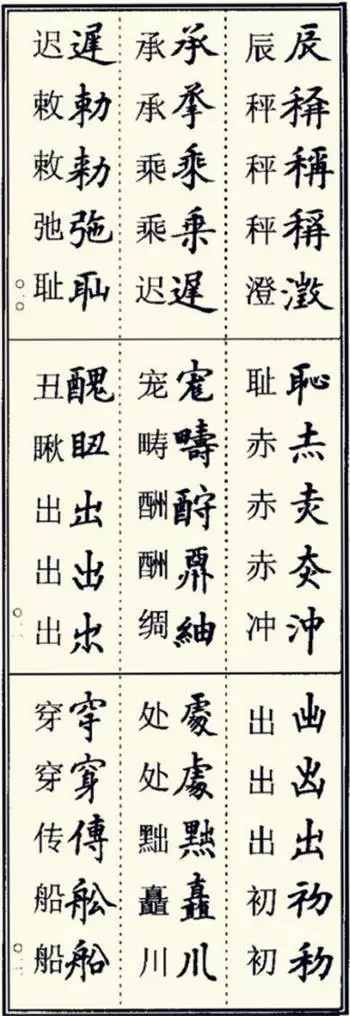 辰稱稱稱澂
辰秤秤秤澄
承乘乗遲
承承乘乘迟
遲勅勑弛耻
迟敕敕弛耻
〇一〇
恥赤沖
耻赤赤赤冲
疇酧紬
宠畴酬酬绸
醜出出出
丑瞅出出出
〇一一
出出出初初
出出出初初
處處矗川
处处黜矗川
穿穿傳舩船
穿穿传船船
〇一二